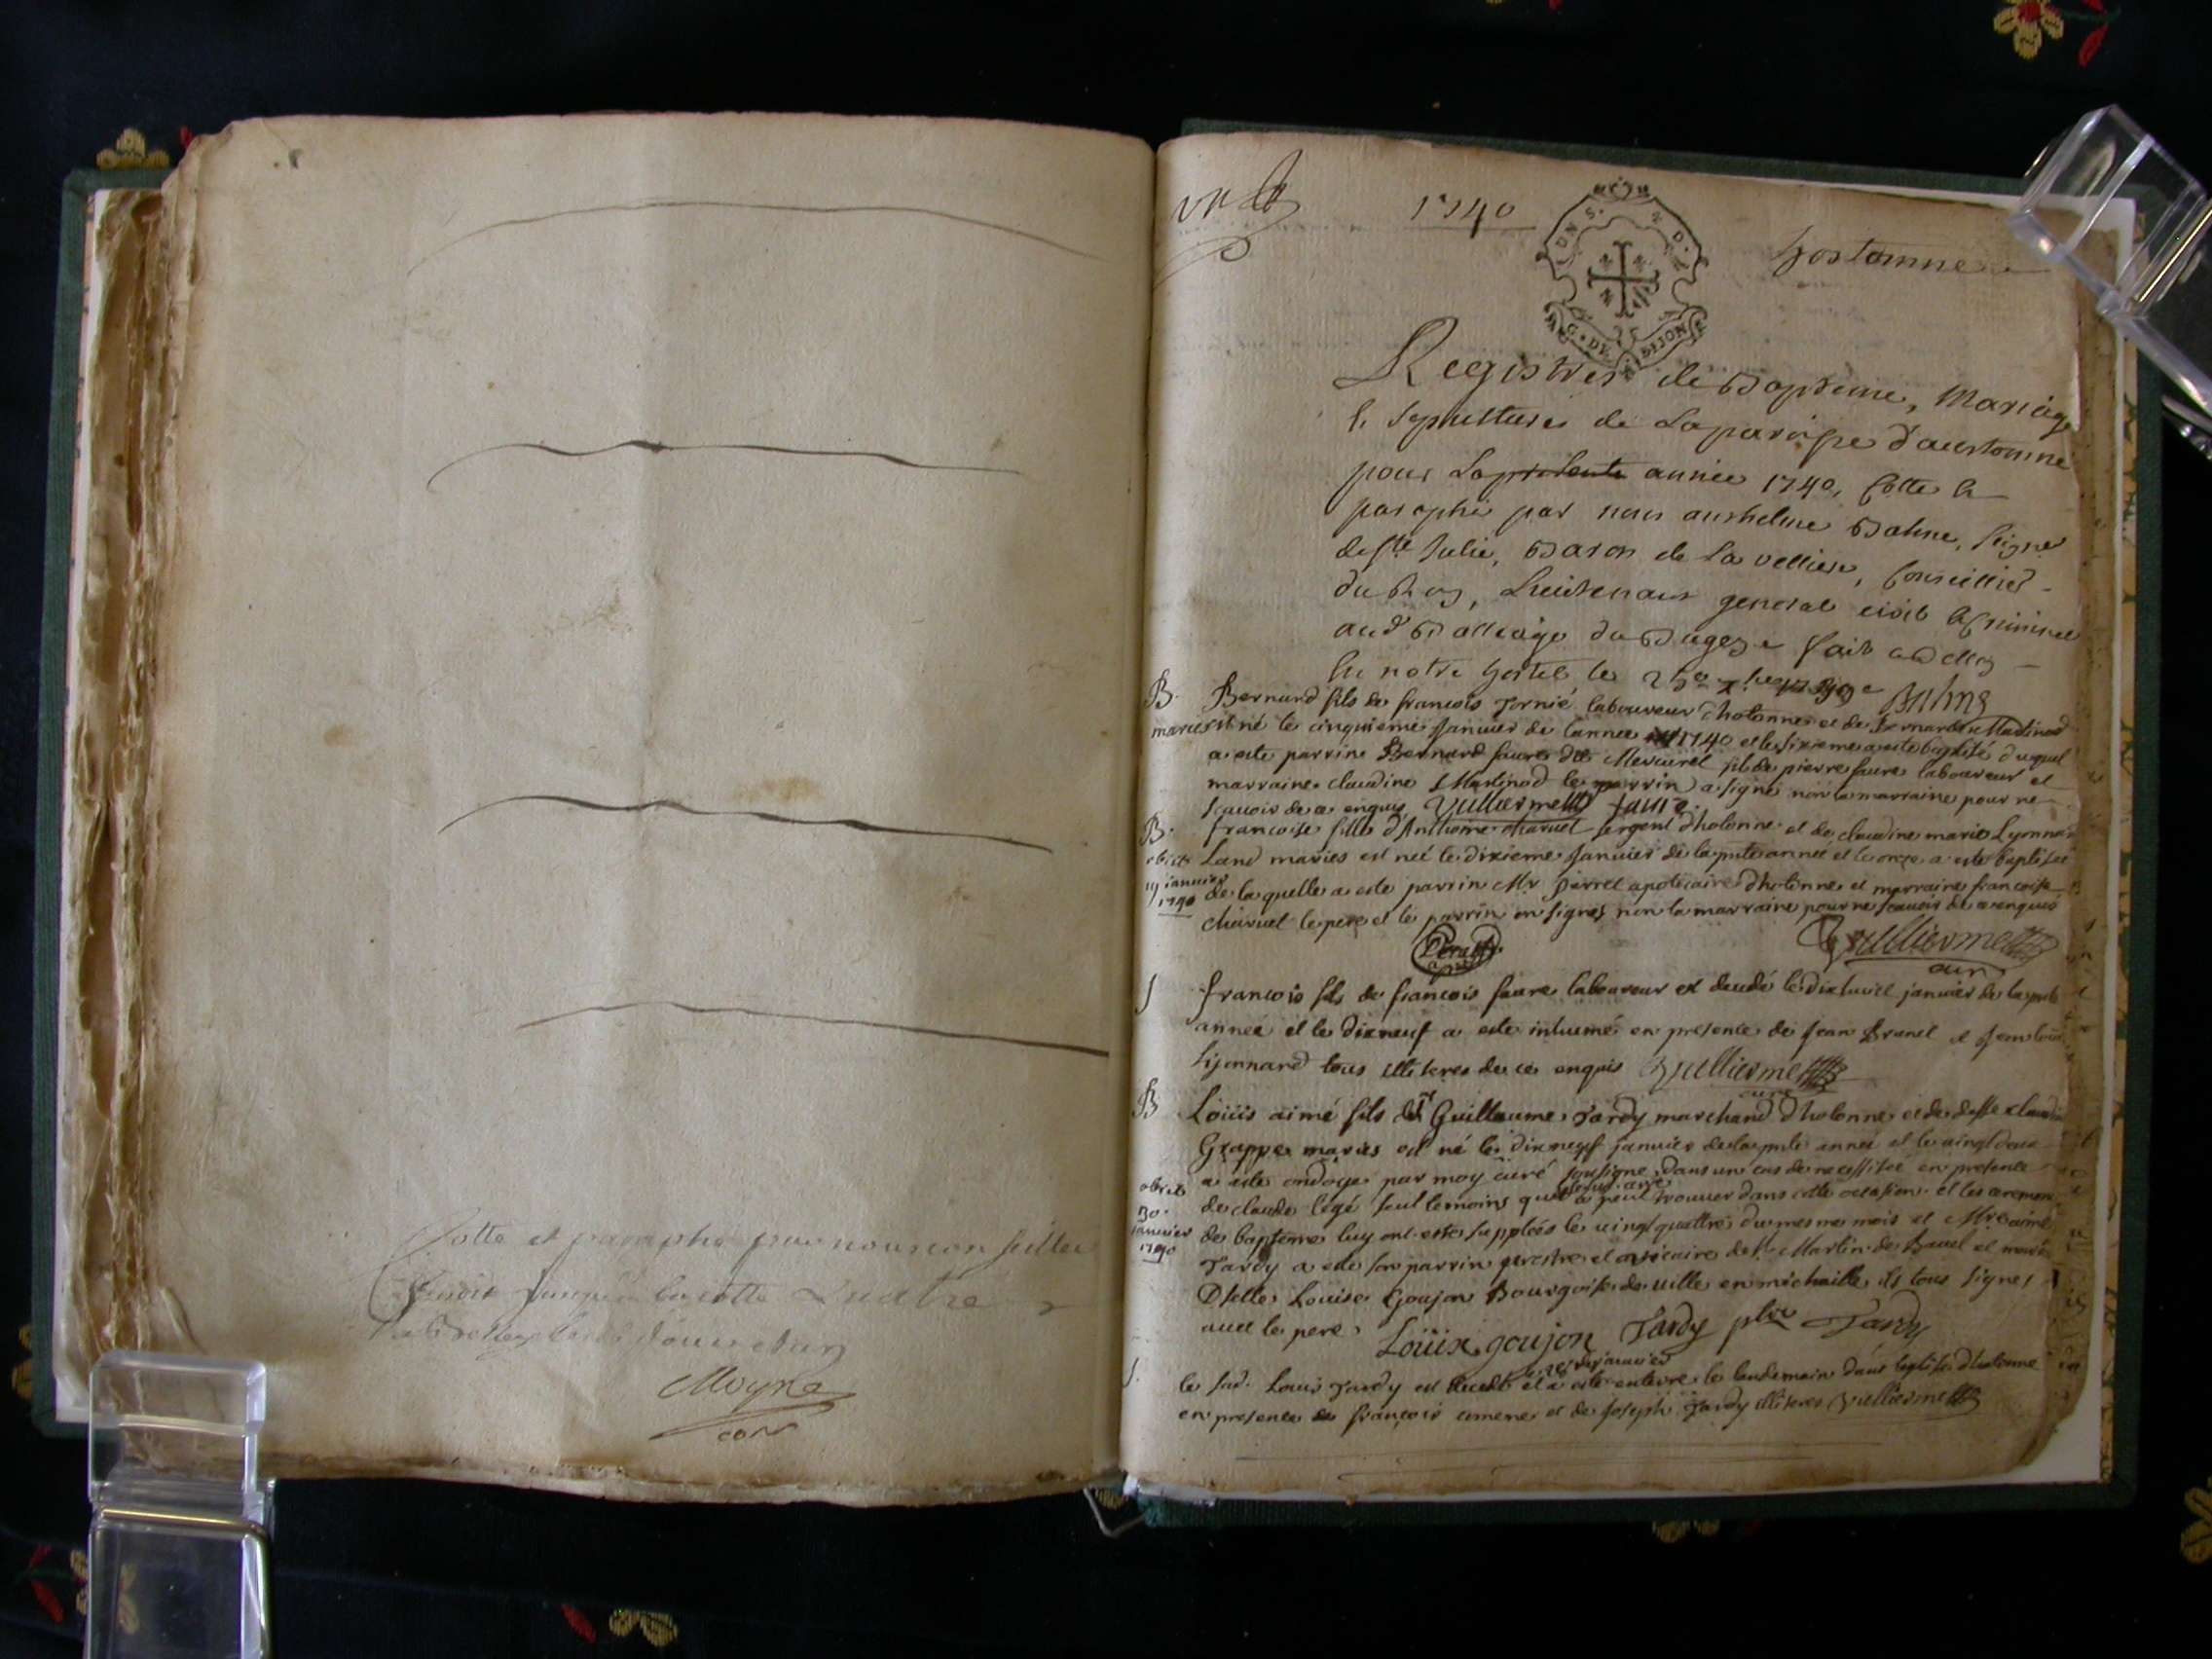 Cotte et paraphé par nous conseiller
jusqu'a la cotte Quatre
Moyne
con
1740
G. DE DIJON
hostomne
Registres de Bapteme, Mariage
& Sepultures de La paroisse d'austomne
pour La presente année 1740, Cotte &
paraphé par nous anthelme Balme, seigne
de Ste Julie, Baron de La velliere, Conseillier
du Roy, Lieutenant general civil & Criminel
au Balliage du Bugey fait a Belley
En notre hostel le 1739 Balme
B. Bernard fils de francois Tornié laboureur d'hotonne et de Bernarde Martinod
mariés est né le cinquieme Janvier de l'annee 1740 et le sixieme a este baptisé duquel
a este parrin Bernard faure dit Mercuret fils de pierre faure laboureur et
marraine claudine Martinod le parrin a signé non la marraine pour ne
scavoir de ce enquis Vulliermet faure
B. francoise fille d'Anthome charvet sergent d'hotonne et de claudine marie Lyonna
obiit Land mariés est neé le dixieme Janvier de la pnte anneé et le onze a este baptiseé
19 janvier de la quelle a este parrin Mr perret apoticaire d'hotonne et marraine francoise
1740 charvet le pere et le parrin on signes non la marraine pour ne scavoir de ce enquis
Perret Vulliermet
curé
S francois fils de francois faure laboureur est decedé le dixhuict janvier de la pnte
anneé et le dixneuf a este inhumé en presence de Jean Brunet et Jean louis
Lyonnard tous illiteres de ce enquis Vulliermet
curé
B Loüis aimé fils de Sr Guillaume Tardy marchand d'hotonne et de delle claudine
Grappe mariés est né le dixneuf janvier de la pnte anneé et le vingt deux
a este ondoyé par moy curé soussigné dans un cas de necessité en presence
obiit de claude legé seul temoins qu'on a peut trouver dans cette occasion et les ceremon
30 de bapteme luy ont este supplées le vingt quattre du mesme mois et Mre aimé
janvier Tardy a este son parrin prestre et vicaire de St Martin de Bavel et mare
1740 Dlelle Louise Goujon Bourgoise de ville en michaille ils tous signes
avec le pere Loüise goujon Tardy ptre Tardy
S. le sud. Louis Tardy est decedé le 30 de janvier et a este enterre le lendemain dans l'eglise d'hotonne
en presence de francois emene et de Joseph Tardy illiteres Vulliermet